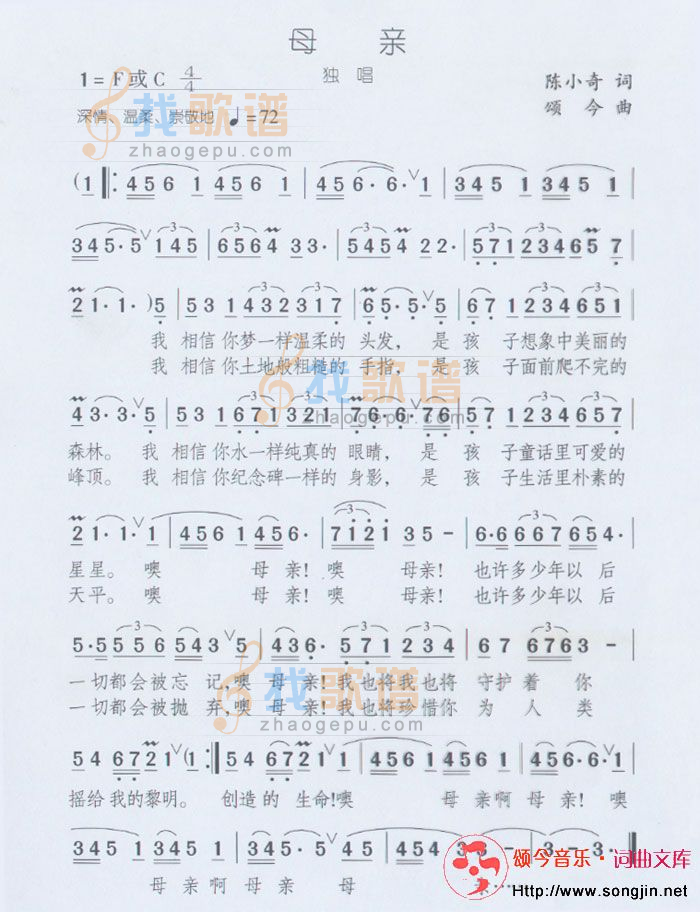 母 亲
1=F或C 4/4
独唱
陈小奇 词
颂 今 曲
深情、温柔、崇敬地 ♩=72
找歌谱
zhaogepu.com
(1 |: 456 1 456 1 | 456· 6· 1 | 345 1 345 1 |
345·5 145 | 6564 33· | 5454 22· | 571 23465 7 |
21·1·)5 | 53 1432317 | 65·5·5 | 67 1234651 |
我 相信你梦一样温柔的 头发, 是 孩 子想象中美丽的
我 相信你土地般粗糙的 手指, 是 孩 子面前爬不完的
找歌谱
zhaogepu.com
43·3·5 | 53 1671321 | 76·6·76 | 57 1234657 |
森林。 我 相信你水一样纯真的 眼睛, 是 孩 子童话里可爱的
峰顶。 我 相信你纪念碑一样的 身影, 是 孩 子生活里朴素的
21·1·1 | 456 1 456· | 7121 35 - | 6·6667654· |
星星。 噢 母 亲! 噢 母亲! 也许多少年以 后
天平。 噢 母 亲! 噢 母亲! 也许多少年以 后
5·5556 543 5 | 436· 571 234 | 67 6763 - |
一切都会被忘 记,噢 母 亲!我也将我也将 守护 着 你
一切都会被抛 弃,噢 母 亲!我也将珍惜你 为 人 类
找歌谱
zhaogepu.com
54 67 21 (1 :| 54 67 21 1 | 456 1 456 1 | 456·6·1 |
摇给我的黎明。 创造的 生命!噢 母 亲啊 母 亲! 噢
345 1 345 1 | 345·5 45 | 454 3 - | - - - - |
母 亲啊 母 亲 母 亲……
颂今音乐·词曲文库
Http://www.songjin.net